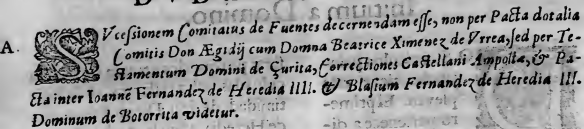 A.
SVccſsionem Comitatus de Fuentes decernendam eſſe, non per Pacta dotalia
Comitis Don Ægidij cum Domna Beatrice Ximenez de Vrrea, ſed per Te-
ſtamentum Domini de Çurita, Correctiones Caſtellani Ampoſtæ, & Pa-
cta inter Ioannẽ Fernandez de Heredia IIII. & Blaſium Fernandez de Heredia III.
Dominum de Botorrita videtur.